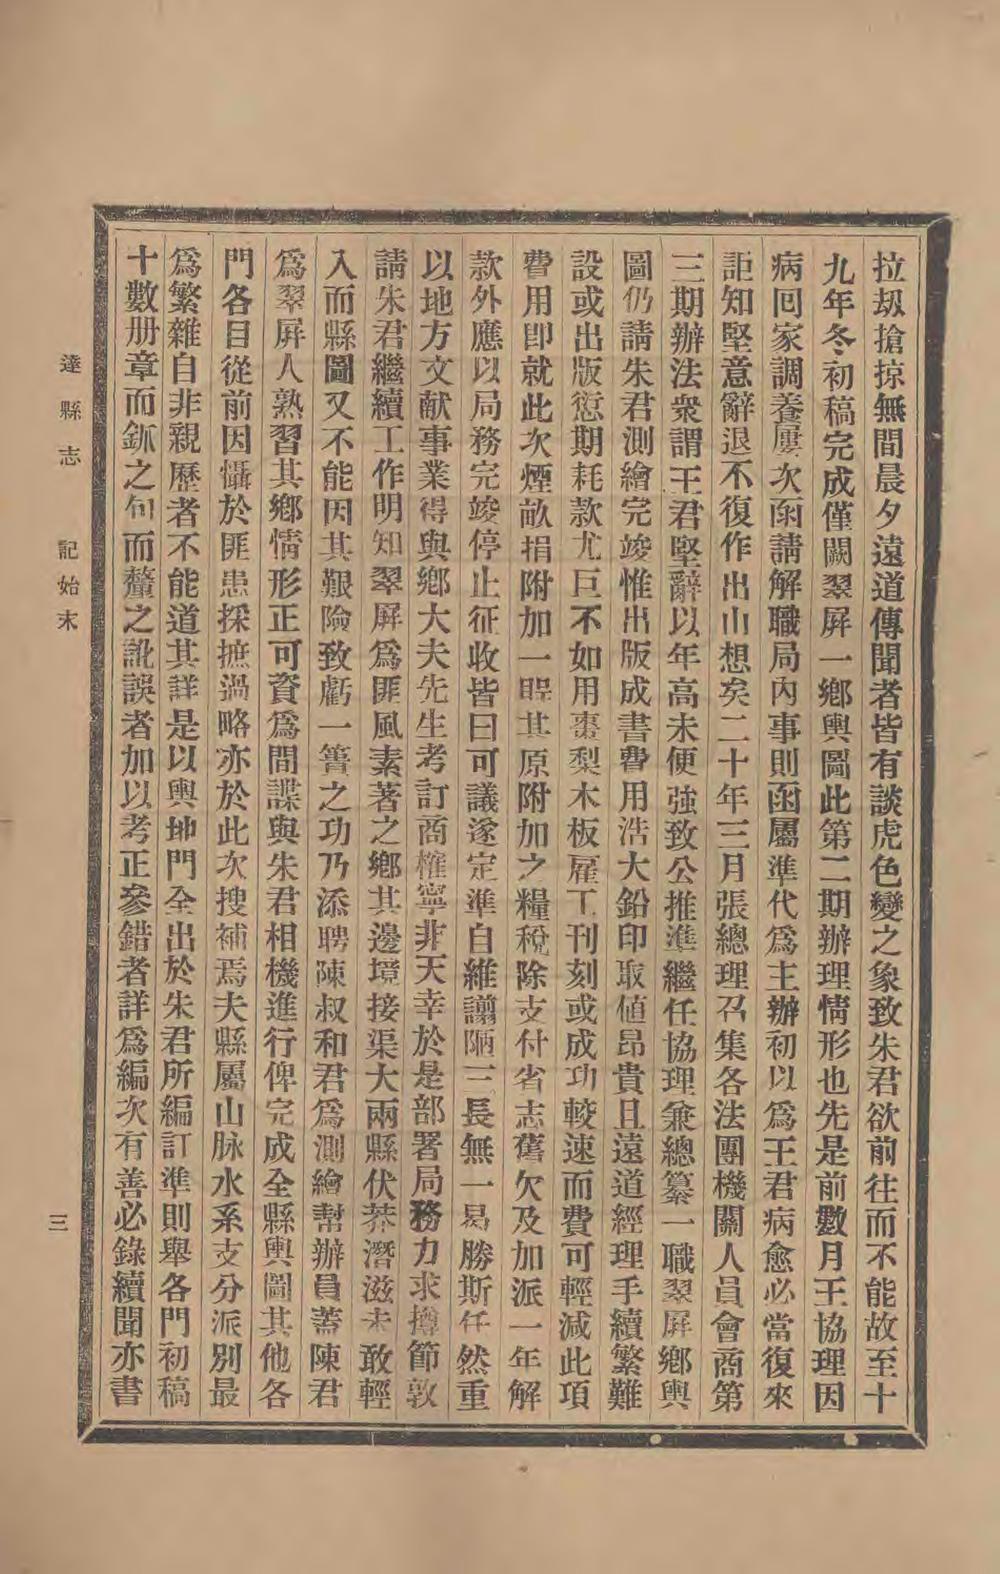 拉刼搶掠無間晨夕遠道傳聞者皆有談虎色變之象致朱君欲前往而不能故至十
九年冬初稿完成僅闕翠屏一鄉輿圖此第二期辦理情形也先是前數月王協理因
病回家調養屢次函請解職局內事則函屬準代爲主辦初以爲王君病愈必當復來
詎知堅意辭退不復作出山想矣二十年三月張總理召集各法團機關人員會商第
三期辦法衆謂王君堅辭以年高未便強致公推準繼任協理兼總纂一職翠屏鄉輿
圖仍請朱君測繪完竣惟出版成書費用浩大鉛印取値昂貴且遠道經理手續繁難
設或出版愆期耗款尤巨不如用棗梨木板雇工刊刻或成功較速而費可輕減此項
費用卽就此次煙畝捐附加一程其原附加之糧稅除支付省志舊欠及加派一年解
款外應以局務完竣停止征收皆曰可議遂定準自維譾陋三長無一曷勝斯任然重
以地方文献事業得與鄉大夫先生考訂商榷寧非天幸於是部署局務力求撙節敦
請朱君繼續工作明知翠屏爲匪風素著之鄉其邊境接渠大兩縣伏莽潛滋未敢輕
入而縣圖又不能因其艱險致虧一簣之功乃添聘陳叔和君爲測繪幇辦員蓋陳君
爲翠屏人熟習其鄉情形正可資爲間諜與朱君相機進行俾完成全縣輿圖其他各
門各目從前因懾於匪患採摭過略亦於此次搜補焉夫縣屬山脉水系支分派別最
爲繁雜自非親歷者不能道其詳是以輿地門全出於朱君所編訂準則舉各門初稿
十數册章而鈲之句而釐之訛誤者加以考正參錯者詳爲編次有善必錄續聞亦書
達縣志　記始末
三